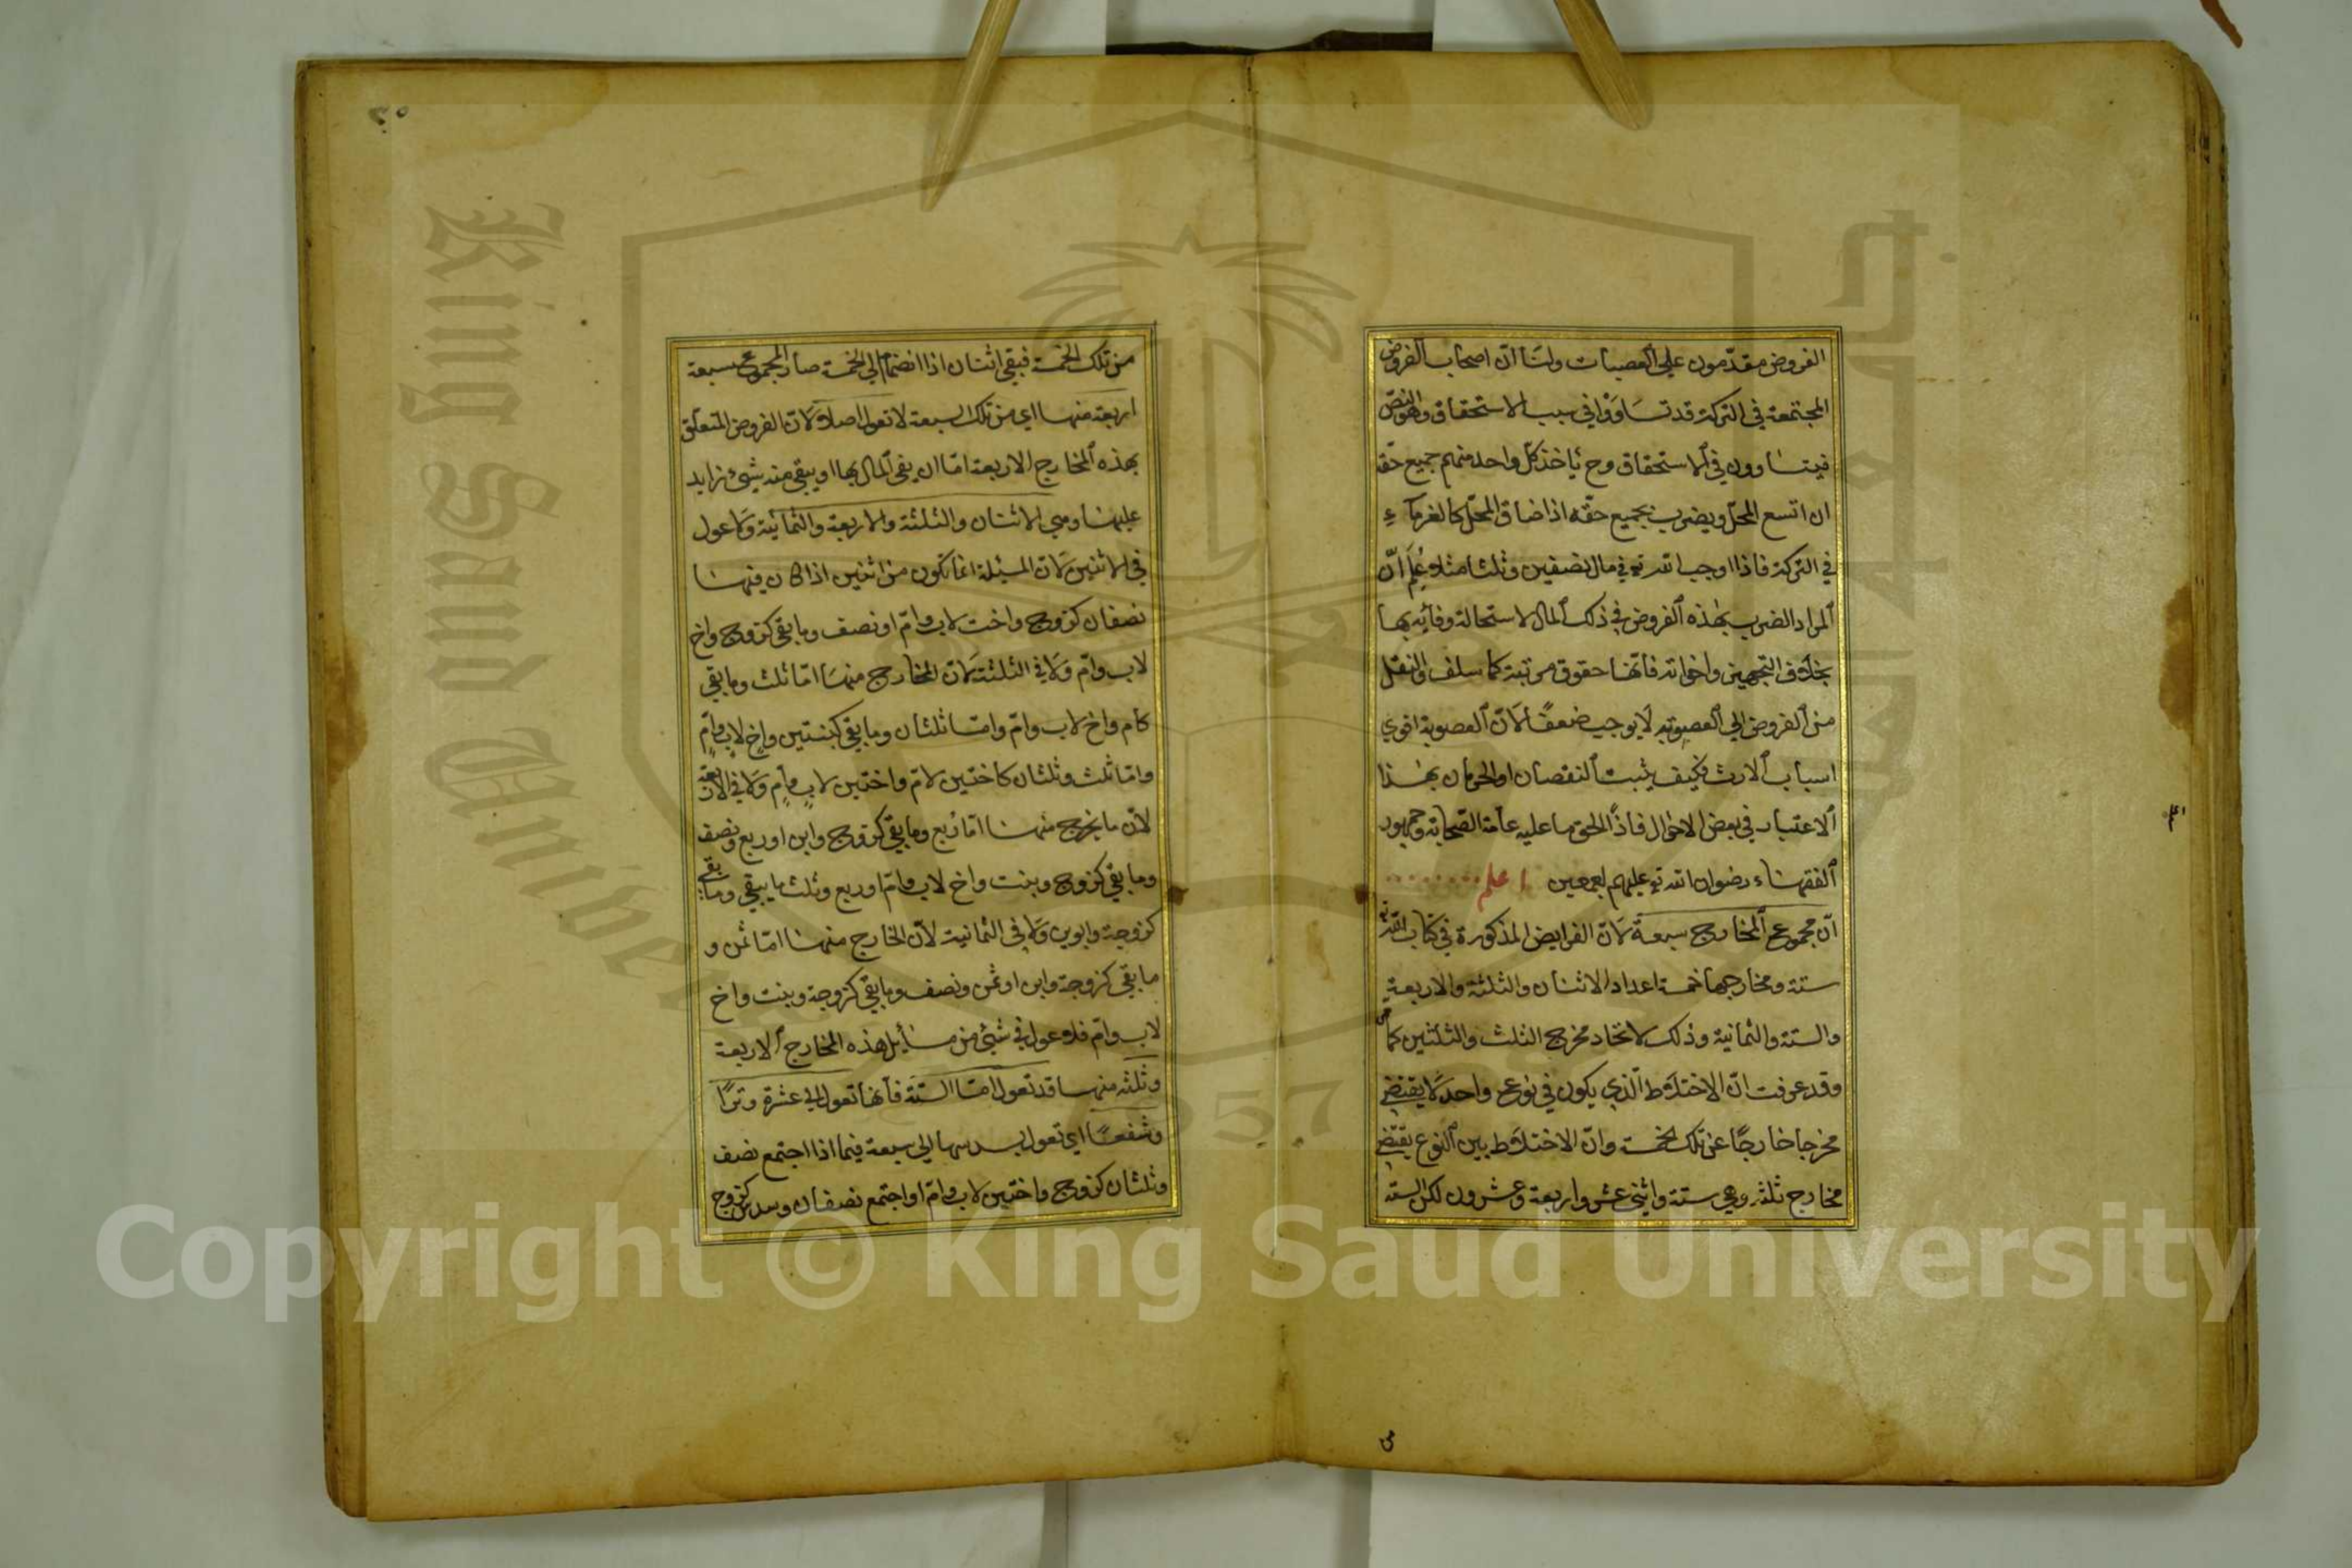 الفروض مقدّمون علي العصبات ولنا انّ اصحاب الفروض
المجتمعة في التركة قد تساوَوْا في سبب الاستحقاق وهو النصّ
فيتساوون في الاستحقاق وح يأخذ كلّ واحد منهم جميع حقّه
ان اتسع المحلّ ويضرب بجميع حقّه اذا ضاق المحلّ كالغرمآء
في التركة فاذا اوجب الله تع في مال نصفين وثلثا مثلا عُلِمَ انّ
المراد الضرب بهذه الفروض في ذلك المال لاستحالة وفائه بها
بخلاف التجهيز واخواته فانّها حقوق مرتبة كما سلف والنقل
من الفروض الي العصوبة لا يوجب ضعفًا لانّ العصوبة اقوي
اسباب الارث فكيف يثبت النقصان او الحرمان بهذا
الاعتبار في بعض الاحوال فاذًا الحق ما عليه عامة الصحابة وجمهور
الفقهاء رضوان الله تع عليهم اجمعين اعلم
انّ مجموع المخارج سبعة لانّ الفرايض المذكورة في كتاب الله تع
ستة ومخارجها خمسة اعداد الاثنان والثلثة والاربعة
والستة والثمانية وذلك لاتحاد مخرج الثلث والثلثين كما مر
وقد عرفت انّ الاختلاط الذي يكون في نوع واحد لا يقتضي
مخرجا خارجًا عن تلك الخمسة وانّ الاختلاط بين النوع يقتضي
مخارج ثلثة وهي ستة واثني عشر واربعة وعشرون لكن الستة
من تلك الخمسة فبقي اثنان اذا انضما الي الخمسة صار المجموع سبعة
اربعة منها اي من تلك السبعة لا تعول اصلا لانّ الفروض المتعلق
بهذه المخارج الاربعة امّا ان يفي المال بها او يبقي منه شيئ زايد
عليها وهي الاثنان والثلثة والاربعة والثمانية ولا عول
في الاثنين لانّ المسئلة انما تكون من اثنين اذا كان فيها
نصفان كزوج واخت لاب وامّ او نصف وما بقي كزوج واخ
لاب وامّ ولا في الثلثة لانّ المخارج منها امّا ثلث وما بقي
كام واخ لاب وامّ وامّا ثلثان وما بقي كبنتين واخ لاب وامّ
وامّا ثلث وثلثان كاختين لامّ واختين لاب وام ولا في الاربعة
لانّ ما يخرج منها امّا ربع وما بقي كزوج وابن او ربع ونصف
وما بقي كزوج وبنت واخ لاب وامّ او ربع وثلث ما يبقي وما بقي
كزوجة وابوين ولا في الثمانية لانّ الخارج منها امّا ثمن و
ما بقي كزوجة وابن او ثمن ونصف وما بقي كزوجة وبنت واخ
لاب وامّ فلا عول في شيئ من مسائل هذه المخارج الاربعة
وثلثه منها قد تعول امّا الستة فانها تعول الي عشرة وترًا
وشفعًا اي تعول بسدسها الي سبعة فيما اذا اجتمع نصف
وثلثان كزوج واختين لاب وامّ او اجتمع نصفان وسدس كزوج
Copyright © King Saud University
King Saud University
1957